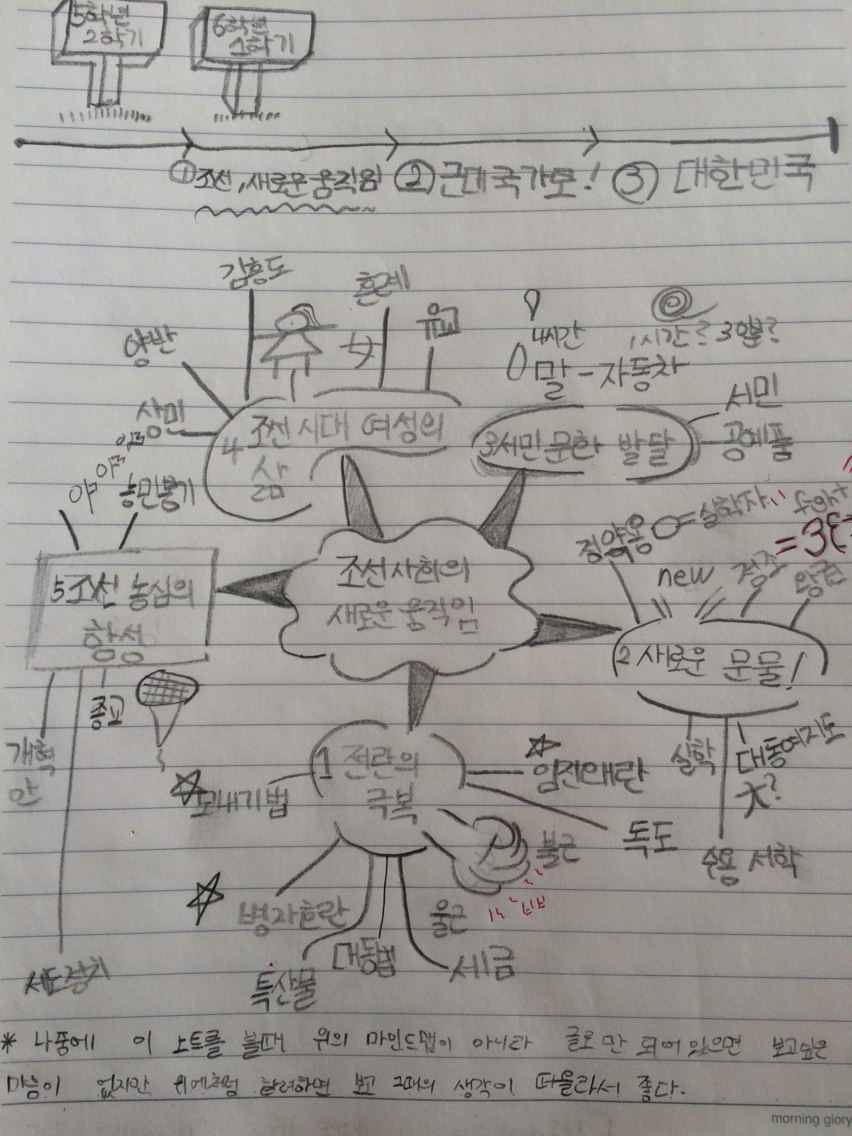 5학년
2학기
6학년
1학기
①조선,새로운움직임 ②근대국가로! ③ 대한민국
김홍도
혼례
유교
양반
상민
4 조선 시대 여성의
삶
4시간
1시간? 30분?
말-자동차
3서민문화 발달
서민
공예품
농민봉기
5조선 농심의
함성
조선사회의
새로운 움직임
정약용
=실학자
new
정조
2 새로운 문물!
실학
대동여지도
大?
수용 서학
종교
개혁
안
세도정치
1 전란의
극복
모내기법
임진왜란
독도
병자호란
특산물
대동법
세금
불근
울근
* 나중에 이 노트를 볼때 위의 마인드맵이 아니라 글로만 되어있으면 보고싶은
마음이 없지만 위에처럼 화려하면 보고 그때의 생각이 떠올라서 좋다.
morning glory